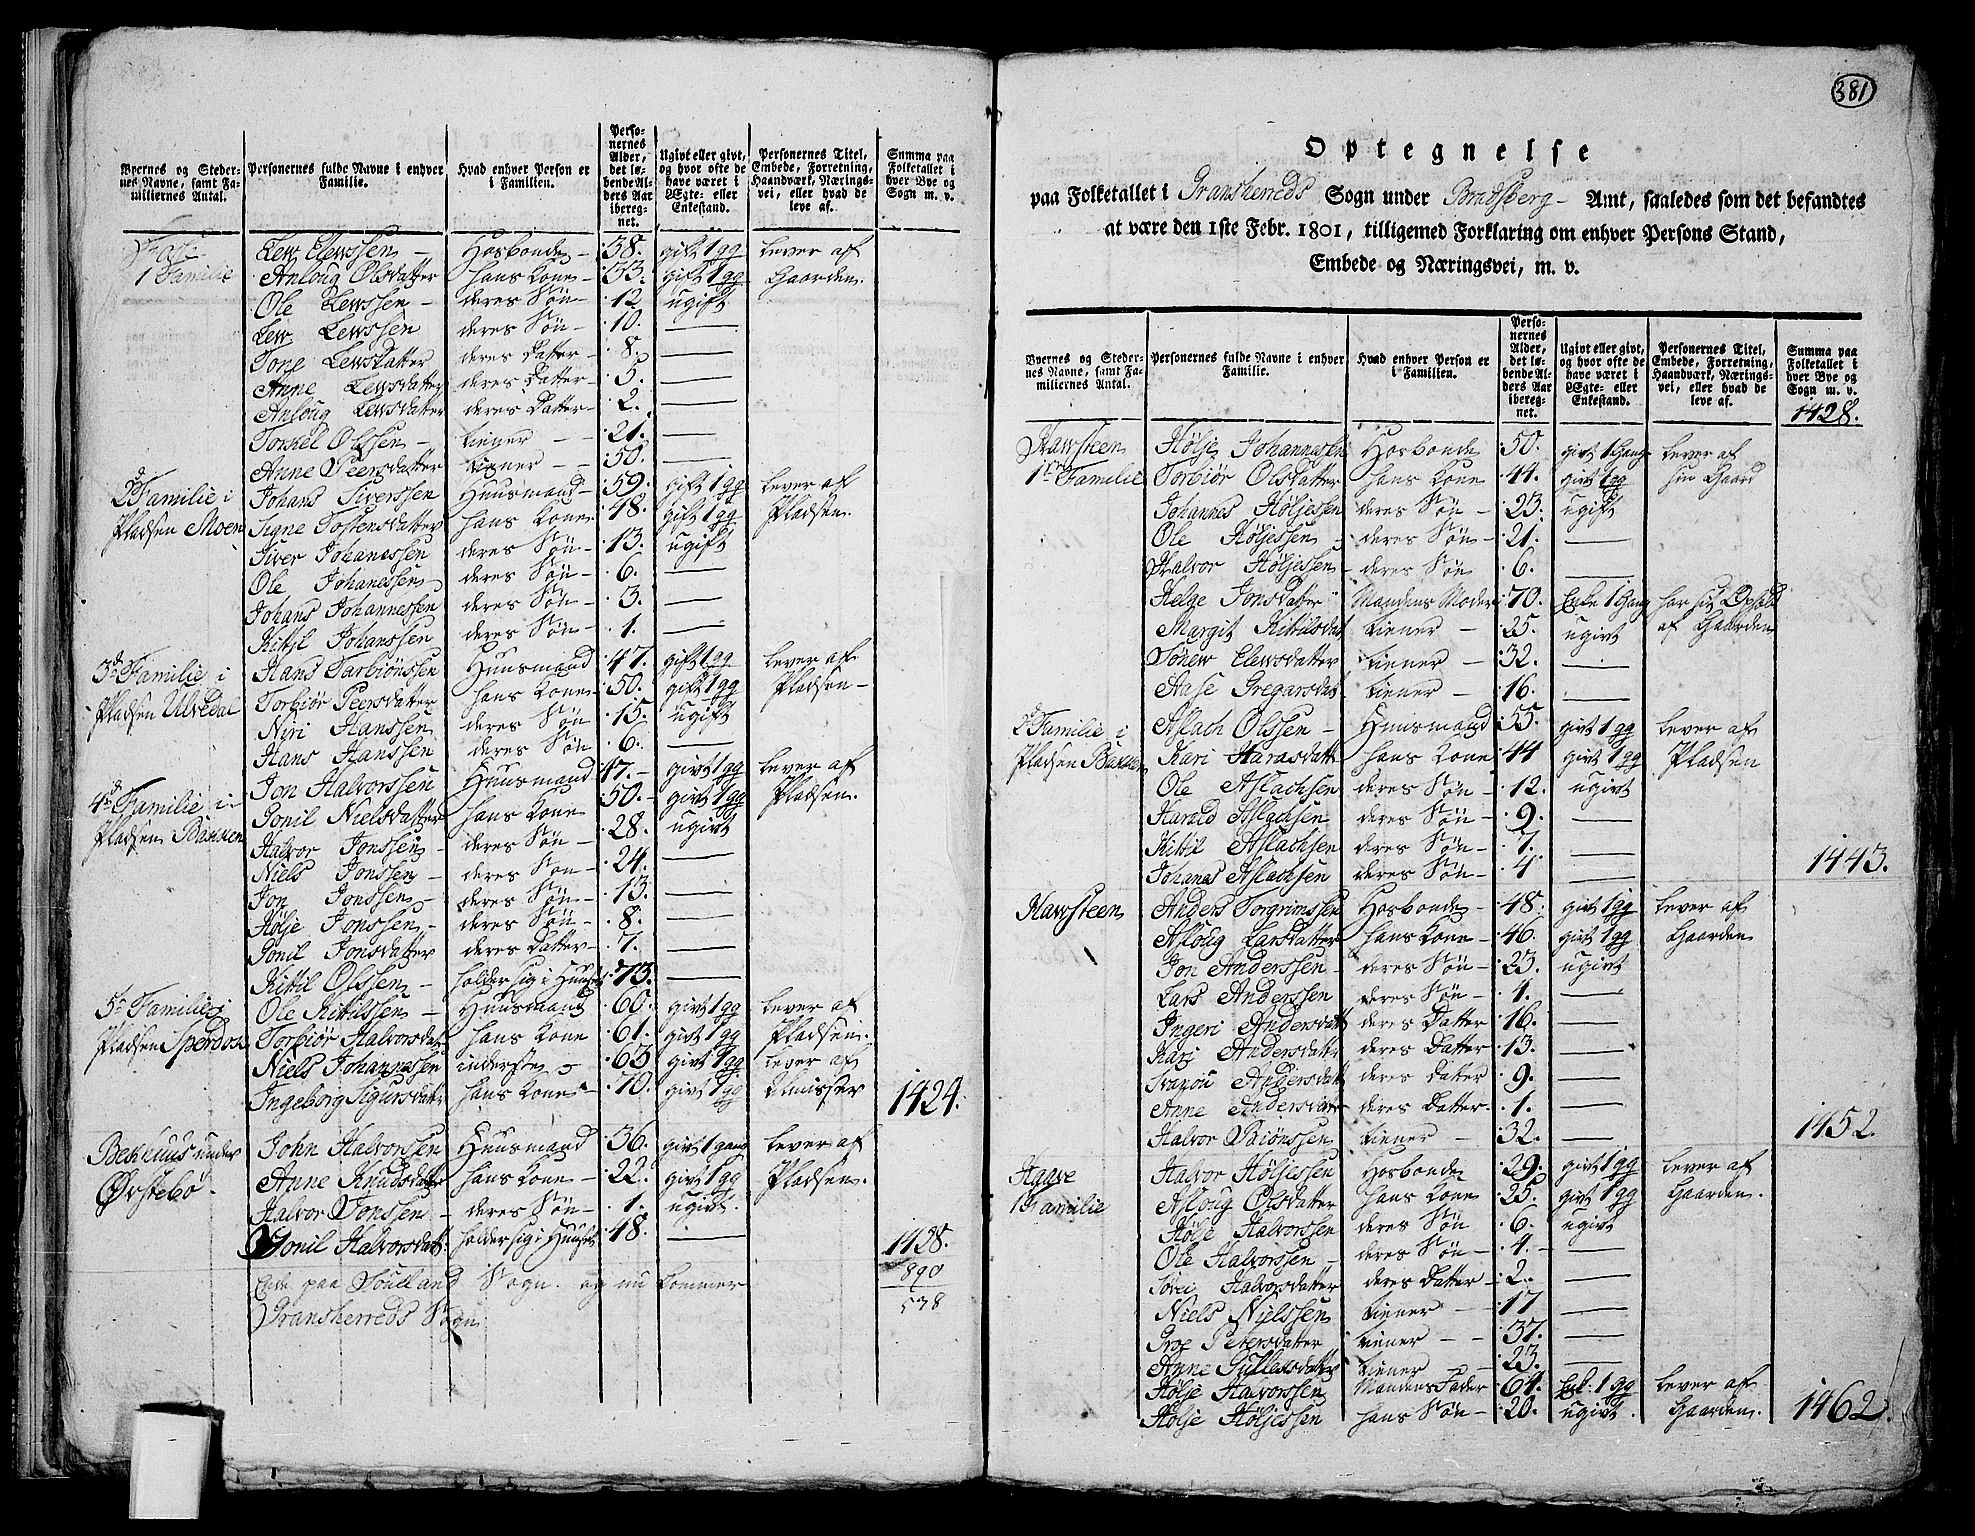 Byernes og Steder-
nes Navne, samt Fa-
miliernes Antal.
Personernes fulde Navne i enhver
Familie.
Hvad enhver Person er
i Familien.
Perso-
nernes
Alder,
det lø-
bende Al-
ders Aar
ibereg-
net.
Ugivt eller givt,
og hvor ofte de
have været i
Ægte- eller
Enkestand.
Personernes Titel,
Embede, Forretning,
Haandværk, Nærings-
vei, eller hvad de
leve af.
Summa paa
Folketallet i
hver Bye og
Sogn m. v.
1 Familie
Lew Lewssen Hosbonde 58. gift 1 gg lever af
Anloug Olsdatter hans Kone 53. gift 1 gg Gaarden
Ole Lewssen deres Søn 12 ugift
Lew Lewssen deres Søn 10. —
Tone Lewsdatter deres Datter 8. —
Anne Lewsdatter deres Datter 5. —
Anloug Lewsdatter deres Datter 2. —
Torkel Olssen tiener 21. —
Anne Peersdatter tiener 50. —
2d Familie i Johans Siverssen Huusmand 59. gift 1 gg lever af
Pladsen Moen Signe Tostensdatter hans Kone 48. gift 1 gg Pladsen.
Siver Johanessen deres Søn 13. ugift
Ole Johanessen deres Søn 6. —
Johans Johannessen deres Søn 3. —
Kittil Johanssen deres Søn 1. —
3d Familie i Hans Tarbiönssen Huusmand 47. gift 1 gg lever af
Pladsen Ulvedal Torbiör Peersdatter hans Kone 50. gift 1 gg Pladsen
Niri Hanssen deres Søn 15. ugift
Hans Hanssen deres Søn 6. —
4d Familie i Jon Halvorssen Huusmand 47. givt 1 gg lever af
Pladsen Bakken Gonil Nielsdatter hans Kone 50. givt 1 gg Pladsen.
Halvor Jonssen deres Søn 28. ugivt
Niels Jonssen deres Søn 24. —
Jon Jonssen deres Søn 13. —
Hølje Jonssen deres Søn 8. —
Gonil Jonsdatter deres Datter 7. —
Kittil Olssen holder sig i Huuset 73. —
5te Familie i Ole Kittilssen Huusmand 60. givt 1 gg lever af
Pladsen Torbiör Halvorsdat hans Kone 61. givt 1 gg Pladsen.
Niels Johannessen inderste 63 givt 1 gg lever af
Ingeborg Sigursdatter hans Kone 70. givt 1 gg Almisser 1424.
Bekhuus under John Halvorssen Huusmand 36. givt 1 gang lever af
Ørstebø. Anne Knudsdatter hans Kone 22. givt 1 gg Pladsen.
Halvor Jonssen deres Søn 1. ugivt.
Gonil Halvorsdatt: holder sig i Huuset 48. — 1428.
Ende paa Souland Sogn og nu kommer 890
Gransherreds Sogn 538
381
Optegnelse
paa Folketallet i Gransherreds Sogn under Bradsberg Amt, saaledes som det befandtes
at være den 1ste Febr. 1801, tilligemed Forklaring om enhver Persons Stand,
Embede og Næringsvei, m. v.
Byernes og Steder-
nes Navne, samt Fa-
miliernes Antal.
Personernes fulde Navne i enhver
Familie.
Hvad enhver Person er
i Familien.
Perso-
nernes
Alder,
det lø-
bende Al-
ders Aar
ibereg-
net.
Ugivt eller givt,
og hvor ofte de
have været i
Ægte- eller
Enkestand.
Personernes Titel,
Embede, Forretning,
Haandværk, Nærings-
vei, eller hvad de
leve af.
Summa paa
Folketallet i
hver Bye og
Sogn m. v.
1428.
Hawsteen Hølje Johannesen Hosbonde 50. givt 1 Gang lever af
1te Familie Torbiör Olsdatter hans Kone 44. givt 1 gg sin Gaard
Johannes Høljessen deres Søn 23. ugift
Ole Høljessen deres Søn 21. —
Halvor Høljessen deres Søn 6. —
Helge Jonsdatter Mandens Moder 70. Enke 1 Gang har sit Ophold
Margit Kittilsdat tiener 25. ugivt af Gaarden
Lewsdatter tiener 32. —
Aase Gregarsdat tiener 16. —
2d Familie i Aslach Olssen Huusmand 55. givt 1 gg lever af
Pladsen Bakken Kari Harasdatt hans Kone 44 givt 1 gg Pladsen
Ole Aslachsen deres Søn 12. ugivt
Harald Aslachsen deres Søn 9. —
Kittil Aslachsen deres Søn 7. —
Johanes Aslachsen deres Søn 4 — 1443.
Hawsteen Anders Torgrimssen Hosbonde 48. givt 1 gg lever af
Asloug Larsdatter hans Kone 46. givt 1 gg Gaarden
Jon Anderssen deres Søn 23. ugivt
Lars Anderssen deres Søn 4. —
Ingeri Andersdatt deres Datter 16. —
Kari Andersdatter deres Datter 13. —
Andersdatt deres Datter 9. —
Anne Andersdatter deres Datter 1. —
Halvor Biönssen tiener 32. — 1452.
Haave Halvor Høljessen Hosbonde 29. givt 1 gg lever af
1 Familie Asloug Olsdatter hans Kone 25. givt 1 gg Gaarden.
Hølje Halvorssen deres Søn 6. ugivt
Ole Halvorssen deres Søn 4. —
Halvorsdatter deres Datter 2. —
Niels Nielssen tiener 17 —
Petersdatter tiener 37. —
Anne tiener 23. —
Hølje Halvorssen Mandens Fader 64. Enk: 1 gg lever af
Hølje Høljessen hans Søn 20. ugivt. Gaarden. 1462.